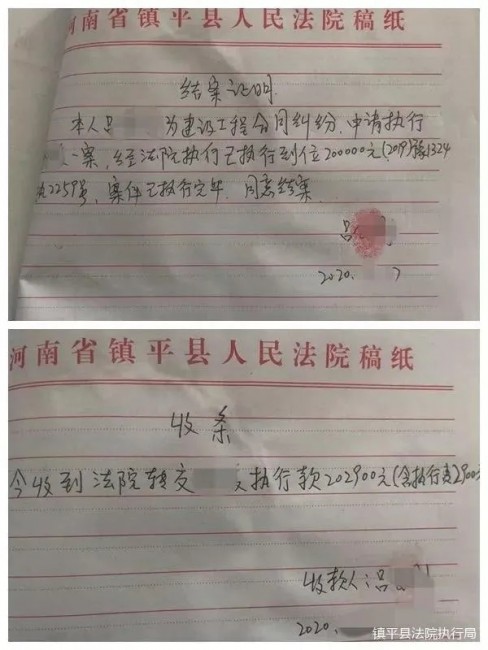 河南省镇平县人民法院稿纸
结案证明
本人吕 为建设工程合同纠纷,申请执行
一案,经法院执行已执行到位200000元,(2019)豫1324
执2259号,案件已执行完毕,同意结案.
吕
2020.
河南省镇平县人民法院稿纸
收条
今收到法院转交 执行款202900元(含执行费2900元
收款人:吕
2020.
镇平县法院执行局